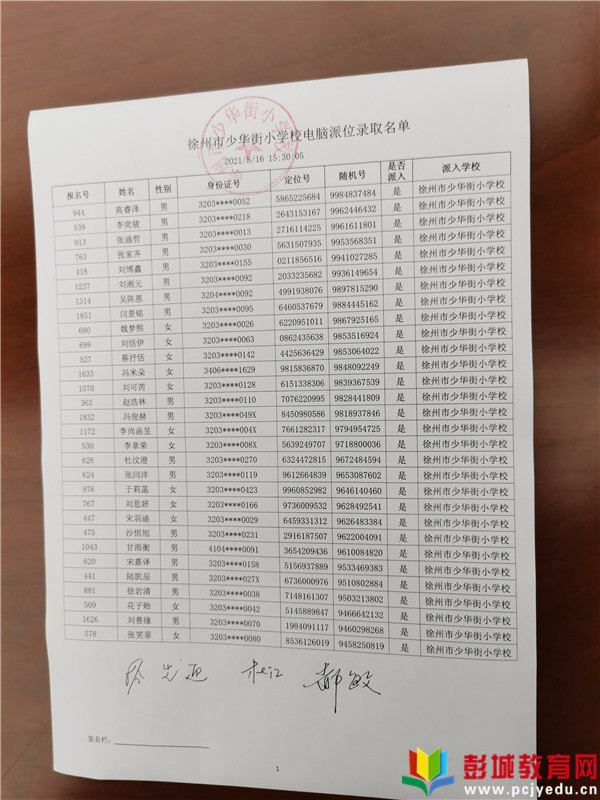 徐州市少华街小学校电脑派位录取名单
2021/8/16 15:30:05
报名号 姓名 性别 身份证号 定位号 随机号 是否派入 派入学校
944 高睿泽 男 3203****0052 5865225684 9984837484 是 徐州市少华街小学校
539 李奕骏 男 3203****0218 2643153167 9962446432 是 徐州市少华街小学校
913 张涵哲 男 3203****0013 2716114225 9961611801 是 徐州市少华街小学校
763 张家齐 男 3203****0030 5631507935 9953568351 是 徐州市少华街小学校
418 刘博鑫 男 3203****0155 0211856516 9941027285 是 徐州市少华街小学校
1237 刘湘元 男 3203****0092 2033235682 9936149654 是 徐州市少华街小学校
1314 吴陈恩 男 3204****0092 4991938076 9897815290 是 徐州市少华街小学校
1851 闫景铭 男 3203****0095 6460537679 9884445162 是 徐州市少华街小学校
680 魏梦熙 女 3203****0026 6220951011 9867925165 是 徐州市少华街小学校
699 刘恬伊 女 3203****0063 0862435638 9853516924 是 徐州市少华街小学校
527 蔡抒恬 女 3203****0142 4425636429 9853064022 是 徐州市少华街小学校
1633 冯米朵 女 3406****1629 9815836870 9848092249 是 徐州市少华街小学校
1070 刘可芮 女 3203****0128 6151338306 9839367539 是 徐州市少华街小学校
363 赵浩林 男 3203****0110 7076220995 9828441809 是 徐州市少华街小学校
1832 冯俊赫 男 3203****049X 8450980586 9818937846 是 徐州市少华街小学校
1172 李尚函昱 女 3203****004X 7661282317 9794954725 是 徐州市少华街小学校
530 李章荣 女 3203****008X 5639249707 9718800036 是 徐州市少华街小学校
626 杜汶澄 男 3203****0270 6324472815 9672484594 是 徐州市少华街小学校
624 张闫洋 男 3203****0119 9612664839 9653087602 是 徐州市少华街小学校
976 于莉菡 女 3203****0423 9960852982 9646140460 是 徐州市少华街小学校
767 刘思妍 女 3203****0166 9736009532 9628492541 是 徐州市少华街小学校
447 宋羽涵 女 3203****0029 6459331312 9626483384 是 徐州市少华街小学校
475 沙恒旭 男 3203****0231 2916187507 9622004091 是 徐州市少华街小学校
1043 甘雨衡 男 4104****0091 3654209436 9610084820 是 徐州市少华街小学校
620 宋嘉译 男 3203****0158 5156937889 9533469383 是 徐州市少华街小学校
441 陆凯辰 男 3203****027X 6736000976 9510802884 是 徐州市少华街小学校
881 徐岩清 男 3203****0038 7148161307 9503213802 是 徐州市少华街小学校
509 花子贻 女 3203****0042 5145889847 9466642132 是 徐州市少华街小学校
1626 刘善缘 男 3203****0070 1984091117 9460298268 是 徐州市少华街小学校
578 张笑菲 女 3203****0080 8536126019 9458250819 是 徐州市少华街小学校
杜江 郝敏
签名栏:
1
彭城教育网
www.pcjyedu.cn